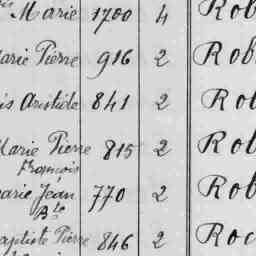 Marie 1700 4 Rob
arie Pierre 916 2 Rob
is Aristide 841 2 Rob
Marie Pierre 815 2 Rob
François
arie Jean 770 2 Rob
Bte
aptiste Pierre 846 2 Roc